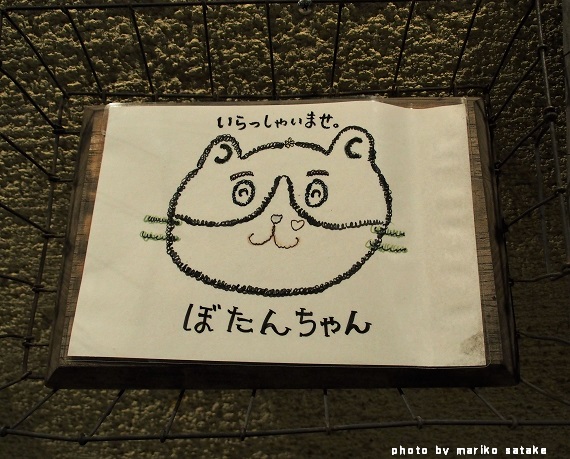 いらっしゃいませ。
ぼたんちゃん
photo by mariko satake